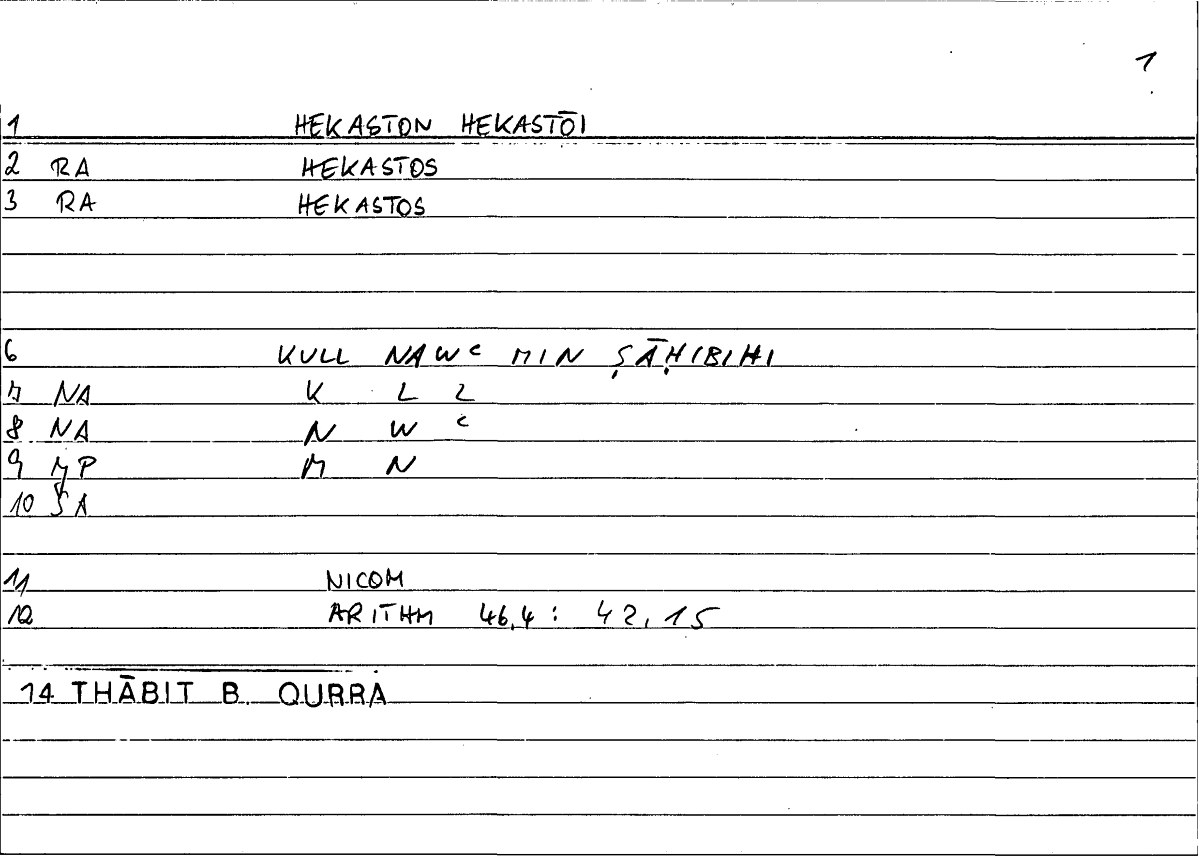 1
1 HEKASTON HEKASTŌI
2 RA HEKASTOS
3 RA HEKASTOS
6 KULL NAWᶜ MIN ṢĀḤIBIHI
7 NA K L L
8 NA N W ᶜ
9 MP M N
10 SA
11 NICOM
12 ARITHM 46,4 : 42,15
14 THĀBIT B. QURRA